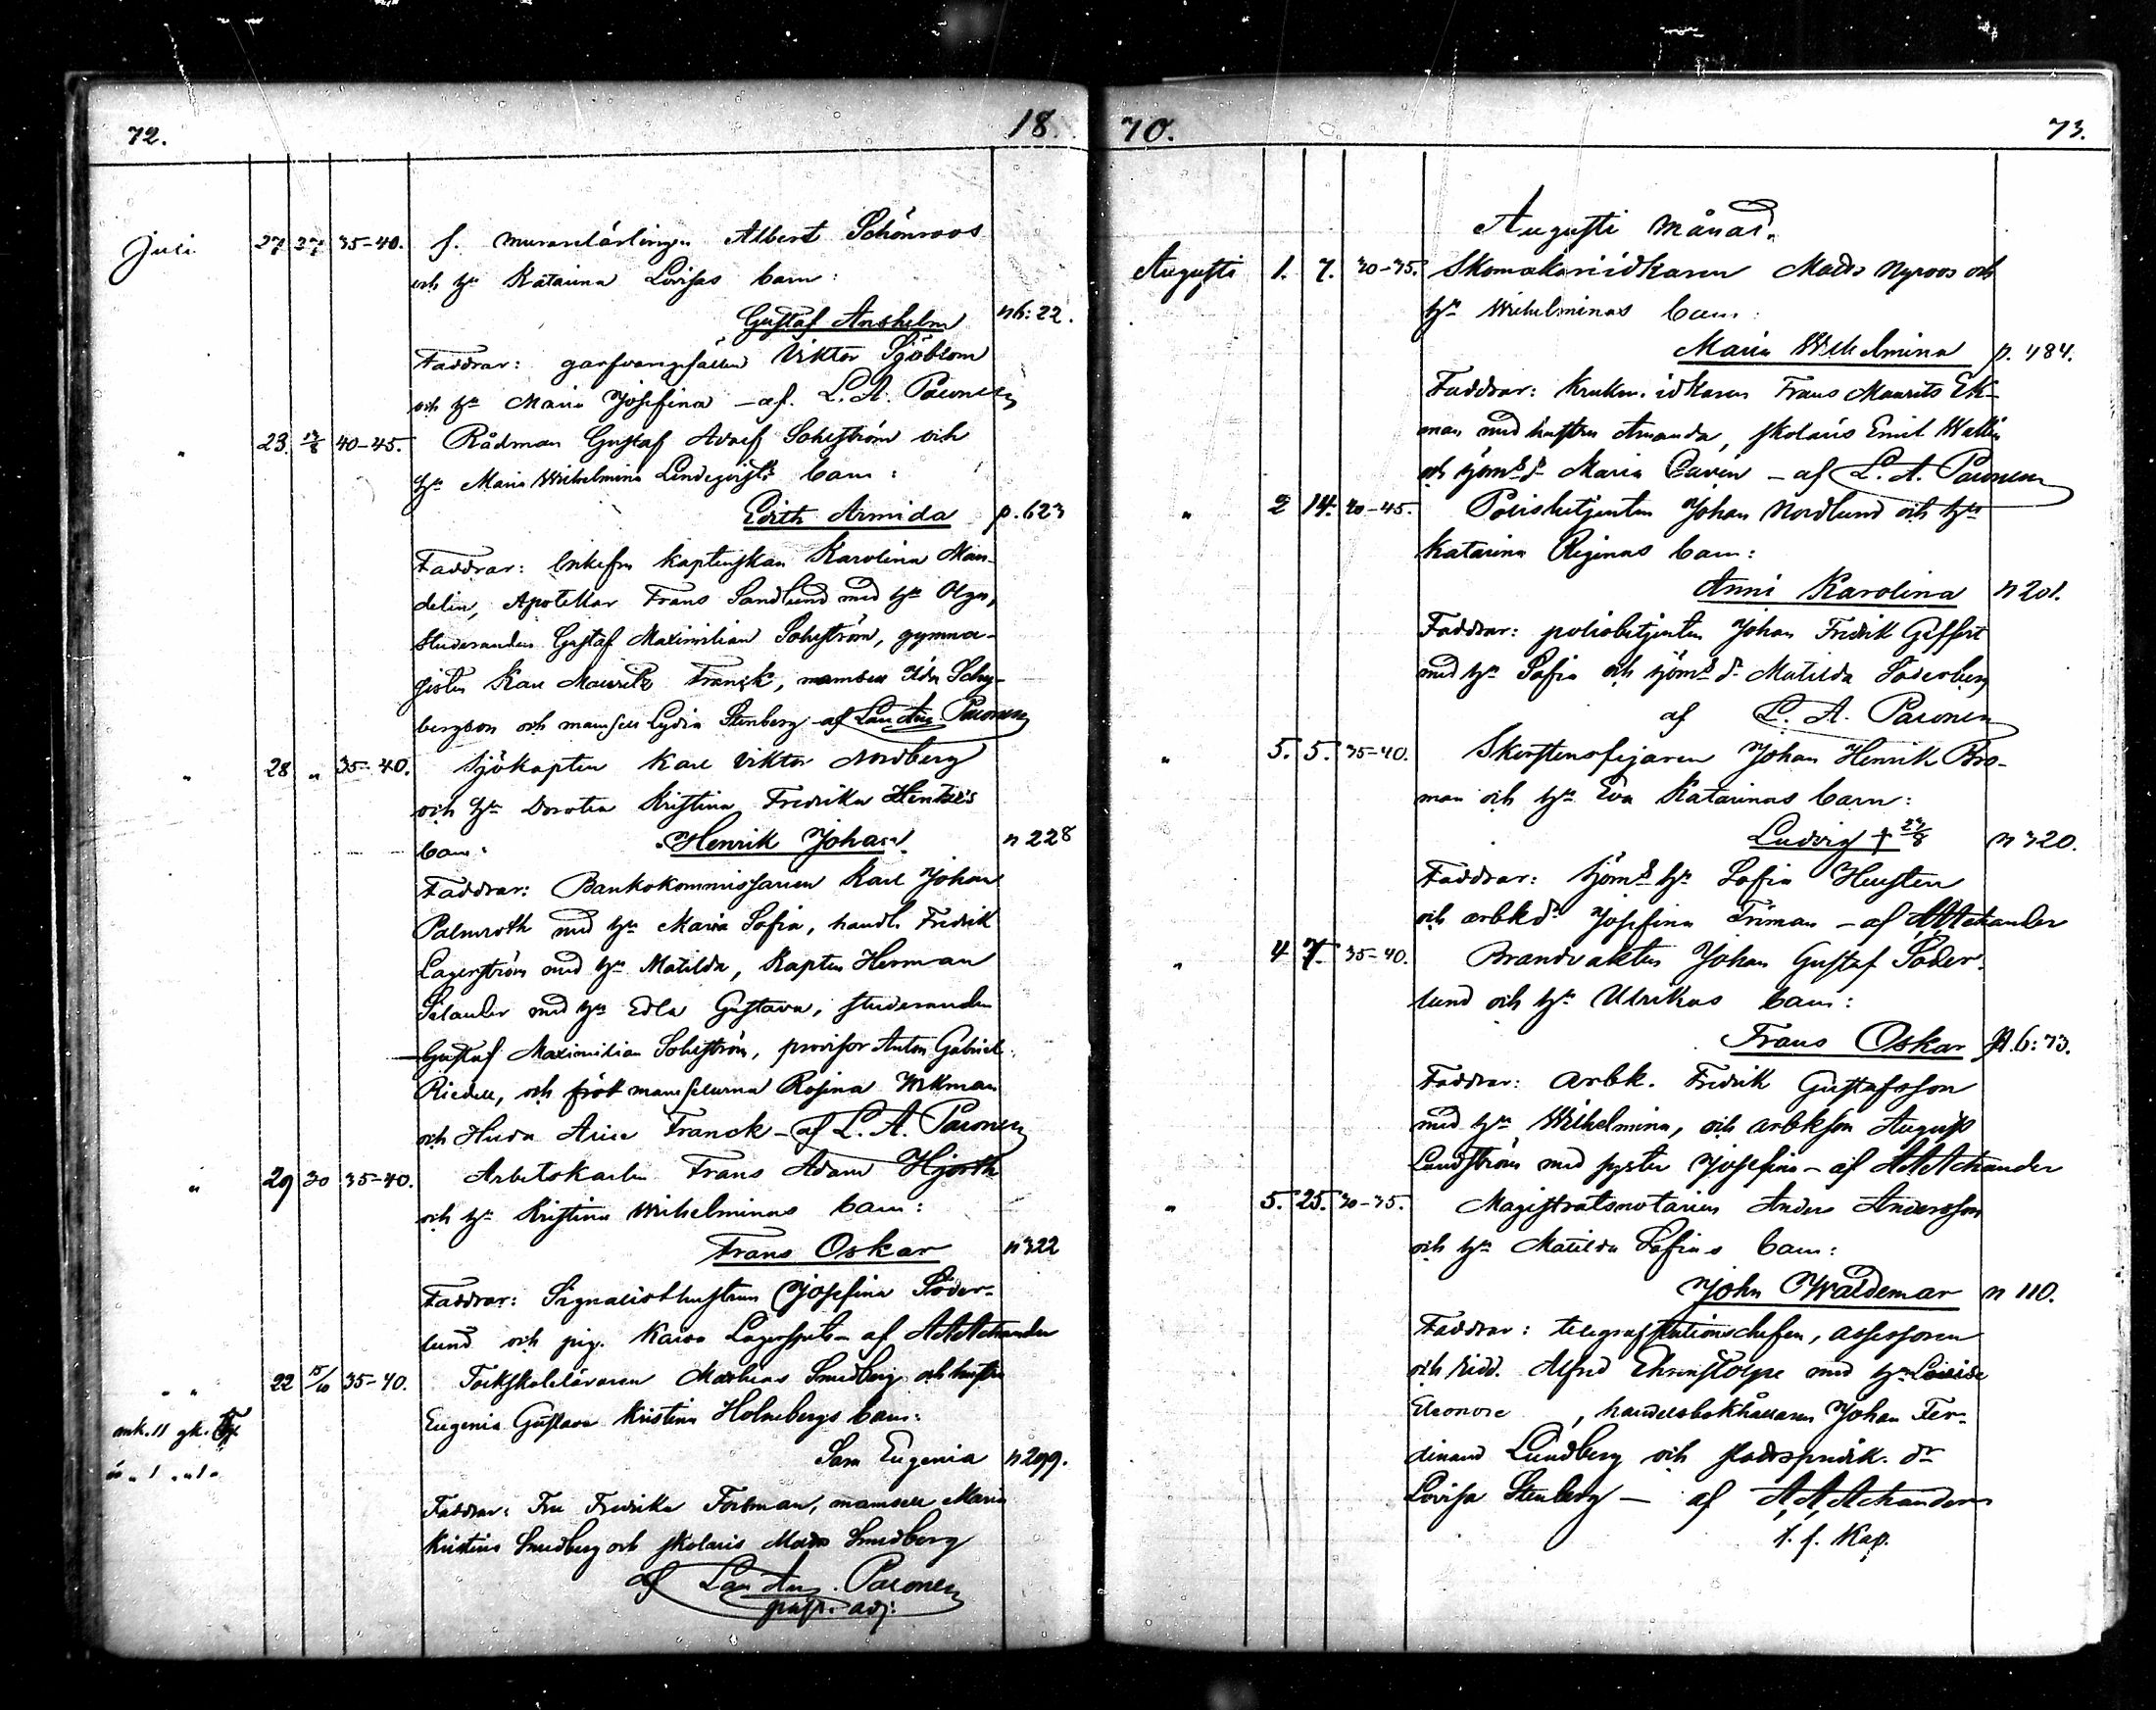 72. 18
Juli 27 27 35-40. f. murarelärlingen Albert Schönroos
och hu Katarina Lovisas barn:
Gustaf Anshelm nb: 22.
Faddrar: garfvaregesällen Viktor Sjöblom
och hu Maria Josefina - af. L. A. Paronen
" 23. 40-45. Rådman Gustaf Adolf Sohlström och
hu Maria Wilhelmina Lindeqvists barn:
Edith Armida p. 623
Faddrar: Enkefru kaptenskan Karolina Man-
delin, Apotekar Frans Sandlund med hu Olga,
Studeranden Gustaf Maximilian Sohlström, gymna-
sisten Karl Mauritz Franck, mamsell Ida Schy-
bergson och mamsell Lydia Stenberg - af Lau Aug Paronen
" 28 " 35-40. Sjökapten Karl Viktor Nordberg
och hu Dorotea Kristina Fredrika Hentzes
barn: Henrik Johan. n 228
Faddrar: Bankokommissarien Karl Johan
Palmroth med hu Maria Sofia, handl. Fredrik
Lagerström med hu Matilda, Kapten Herman
Selander med hu Edla Gustava, studeranden
Gustaf Maximilian Sohlström, provisor Anton Gabriel
Riedell, och mamsellerna Rosina Wikman
och Hilda Alice Franck - af L. A. Paronen
" 29 30 35-40. Arbetskarlen Frans Adam Hjorth
och hu Kristina Wilhelminas barn:
Frans Oskar n 322
Faddrar: Signalisthustrun Josefina Söder-
lund och pig. Karoo - af A A Achander
" " 22 15/10 35-40. Folkskoleläraren Mathias Smedberg och hustru
Eugenia Gustava Kristina Holmbergs barn:
ank. 11 gk.
Sara Eugenia n 299.
Faddrar: Fru Fredrika Forsman, mamsell Maria
Kristina Smedberg och skolaris Mads Smedberg
af Lau Aug. Paronen
past. adj.
70. 73.
Augusti Månad.
Augusti 1. 7. 30-35. Skomakeriidkaren Mads Nyroos och
hu Wilhelminas barn:
Maria Wilhelmina p. 484.
Faddrar: krukm. idkaren Frans Maurits Ek-
man med hustru Amanda, skolaris Emil Wallin
och sjöms dr Maria Cavén - af L. A. Paronen
" 2 14. 40-45. Polisbetjenten Johan Nordlund och hu
Katarina Reginas barn:
Anni Karolina n 201.
Faddrar: polisbetjenten Johan Fredrik Geffert
med hu Sofia och sjöms dr Matilda Söderberg
af L. A. Paronen
" 5. 5. 35-40. Skorstensfejaren Johan Henrik Bro-
man och hu Eva Katarinas barn:
Ludvig † n 320.
Faddrar: sjöms hu Sofia Hellsten
och arbk dr Josefina Friman - af A A Achander
" 4 7. 35-40. Brandvakten Johan Gustaf Söder-
lund och hu Ulrikas barn:
Frans Oskar N. b: 73.
Faddrar: arbk. Fredrik Gustafsson
med hu Wilhelmina, och arbkson August
Lundström med syster Josefina - af A A Achander
" 5. 25. 30-35. Magistratsnotarien Anders Andersson
och hu Matilda Sofias barn:
John Waldemar n 110.
Faddrar: telegrafstationschefen, assessoren
och ridd. Alfred Ehrnstolpe med hu Lovisa
Eleonore , handelsbokhållaren Johan Fer-
dinand Lundberg och stadspredik. dr
Lovisa Stenberg - af A. A. Achander
t. f. Kap.